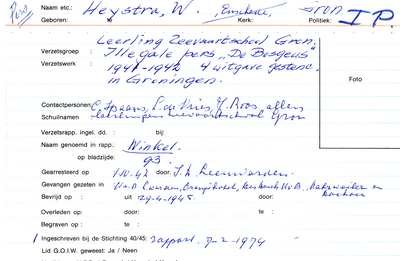 Pers
Naam etc.: Heystra, W. , Enschede, GRON
Geboren: te Kerk: Politiek: I P
Leerling Zeevaartschool Gron.
Verzetsgroep : Illegale pers „De Bosgeus"
Verzetswerk : 1941-1942 4 uitgave gestenc.
in Groningen.
Foto
Contactpersonen: C. Spaans, P. de Vries, J. Roos, allen
Schuilnamen leerlingen zeevaartschool Gron
Verzetsrapp. ingel. dd. : bij:
Naam genoemd in rapp.: Winkel.
op bladzijde: 93.
Gearresteerd op 1-10-42 door: Leeuwarden.
Gevangen gezeten in Oranjehotel,
Bevrijd op : uit 29-4-1945
Overleden op: door: te :
Begraven op : te :
Ingeschreven bij de Stichting 40/45: rapport. 7-2-1974
Lid G.O.I.W. geweest: Ja / Neen